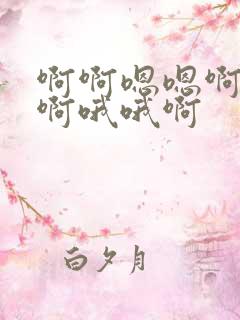 啊啊嗯嗯啊
啊哦哦啊
白夕月